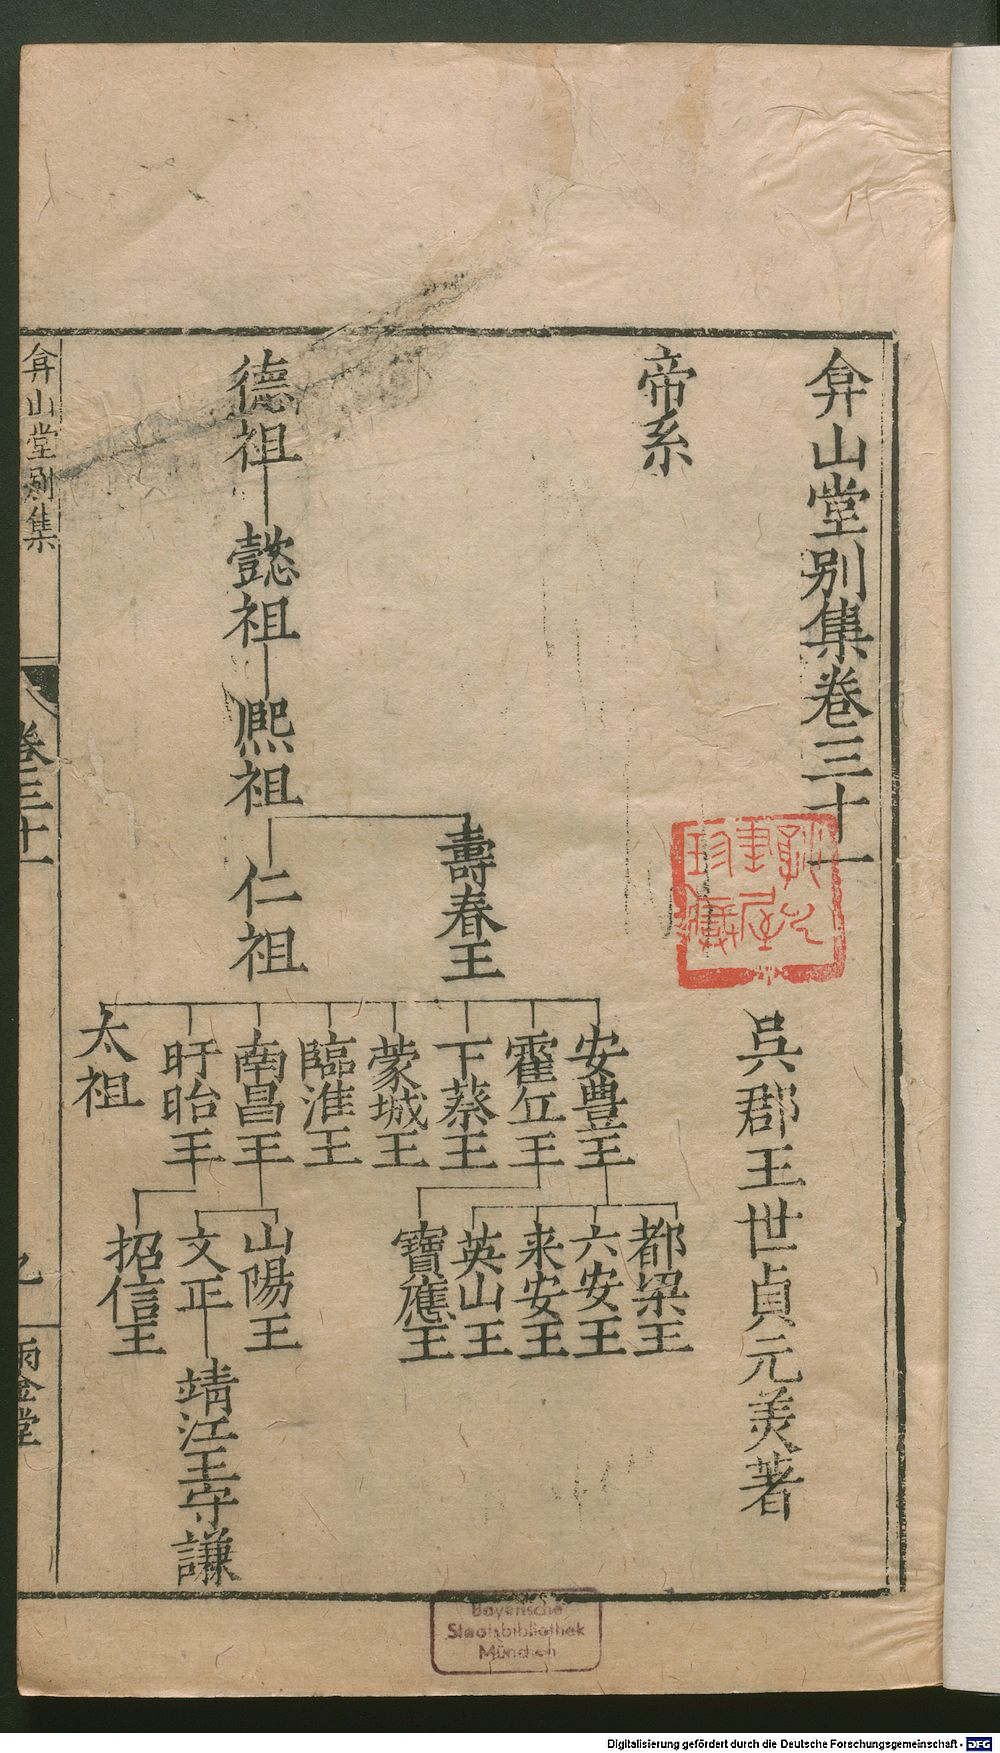 弇山堂別集卷三十一
吳郡王世貞元美著
帝系
德祖
懿祖
熈祖
壽春王
仁祖
安豊王
霍丘王
下蔡王
蒙城王
臨淮王
南昌王
盱眙王
太祖
都梁王
六安王
来安王
英山王
寶應王
山陽王
文正
招信王
靖江王守謙
弇山堂別集
卷三十一
Bayerische
Staatsbibliothek
München
Digitalisierung gefördert durch die Deutsche Forschungsgemeinschaft - DFG